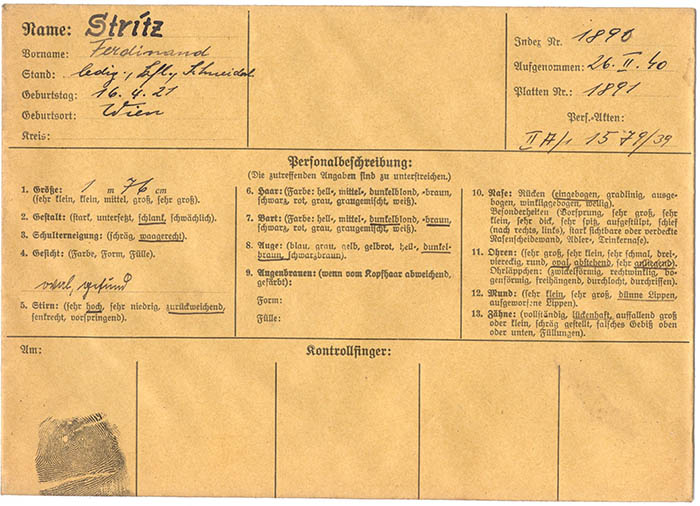 Name: Stritz
Vorname: Ferdinand
Stand: ledig,
Geburtstag: 16. 4. 21
Geburtsort: Wien
Kreis:
Index Nr. 1890
Aufgenommen: 26. II. 40
Platten Nr.: 1891
Pers.-Akten:
II A/1 1579/39
Personalbeschreibung:
(Die zutreffenden Angaben sind zu unterstreichen).
1. Größe: 1 m 76 cm
(sehr klein, klein, mittel, groß, sehr groß).
2. Gestalt: (stark, untersetzt, schlank, schwächlich).
3. Schulterneigung: (schräg, waagerecht).
4. Gesicht: (Farbe, Form, Fülle).
oval, gesund
5. Stirn: (sehr hoch, sehr niedrig, zurückweichend,
senkrecht, vorspringend).
6. Haar: (Farbe: hell-, mittel-, dunkelblond, -braun,
schwarz, rot, grau, graugemischt, weiß).
7. Bart: (Farbe: hell-, mittel-, dunkelblond, -braun,
schwarz, rot, grau, graugemischt, weiß).
8. Auge: (blau, grau, gelb, gelbrot, hell-, dunkel-
braun, schwarzbraun).
9. Augenbrauen: (wenn vom Kopfhaar abweichend,
gefärbt):
Form:
Fülle:
10. Nase: Rücken (eingebogen, gradlinig, ausge-
bogen, winkliggebogen, wellig).
Besonderheiten (Vorsprung, sehr groß, sehr
klein, sehr dick, sehr spitz, aufgestülpt, schief
(nach rechts, links), stark sichtbare oder verdeckte
Nasenscheidewand, Adler-, Trinkernase).
11. Ohren: (sehr groß, sehr klein, sehr schmal, drei-
viereckig, rund, oval, abstehend, sehr anliegend).
Ohrläppchen: (zwickelförmig, rechtwinklig, bo-
genförmig, freihängend, durchlocht, durchrissen).
12. Mund: (sehr klein, sehr groß, dünne Lippen,
aufgeworfene Lippen).
13. Zähne: (vollständig, lückenhaft, auffallend groß
oder klein, schräg gestellt, falsches Gebiß oben
oder unten, Füllungen).
Am:
Kontrollfinger: